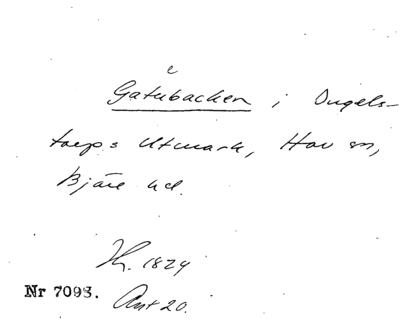 Gatubacken i Ougels-
torps Utmark, Hov sn,
Bjäre hd.
H. 1824
Nr 7093. Ant 20.